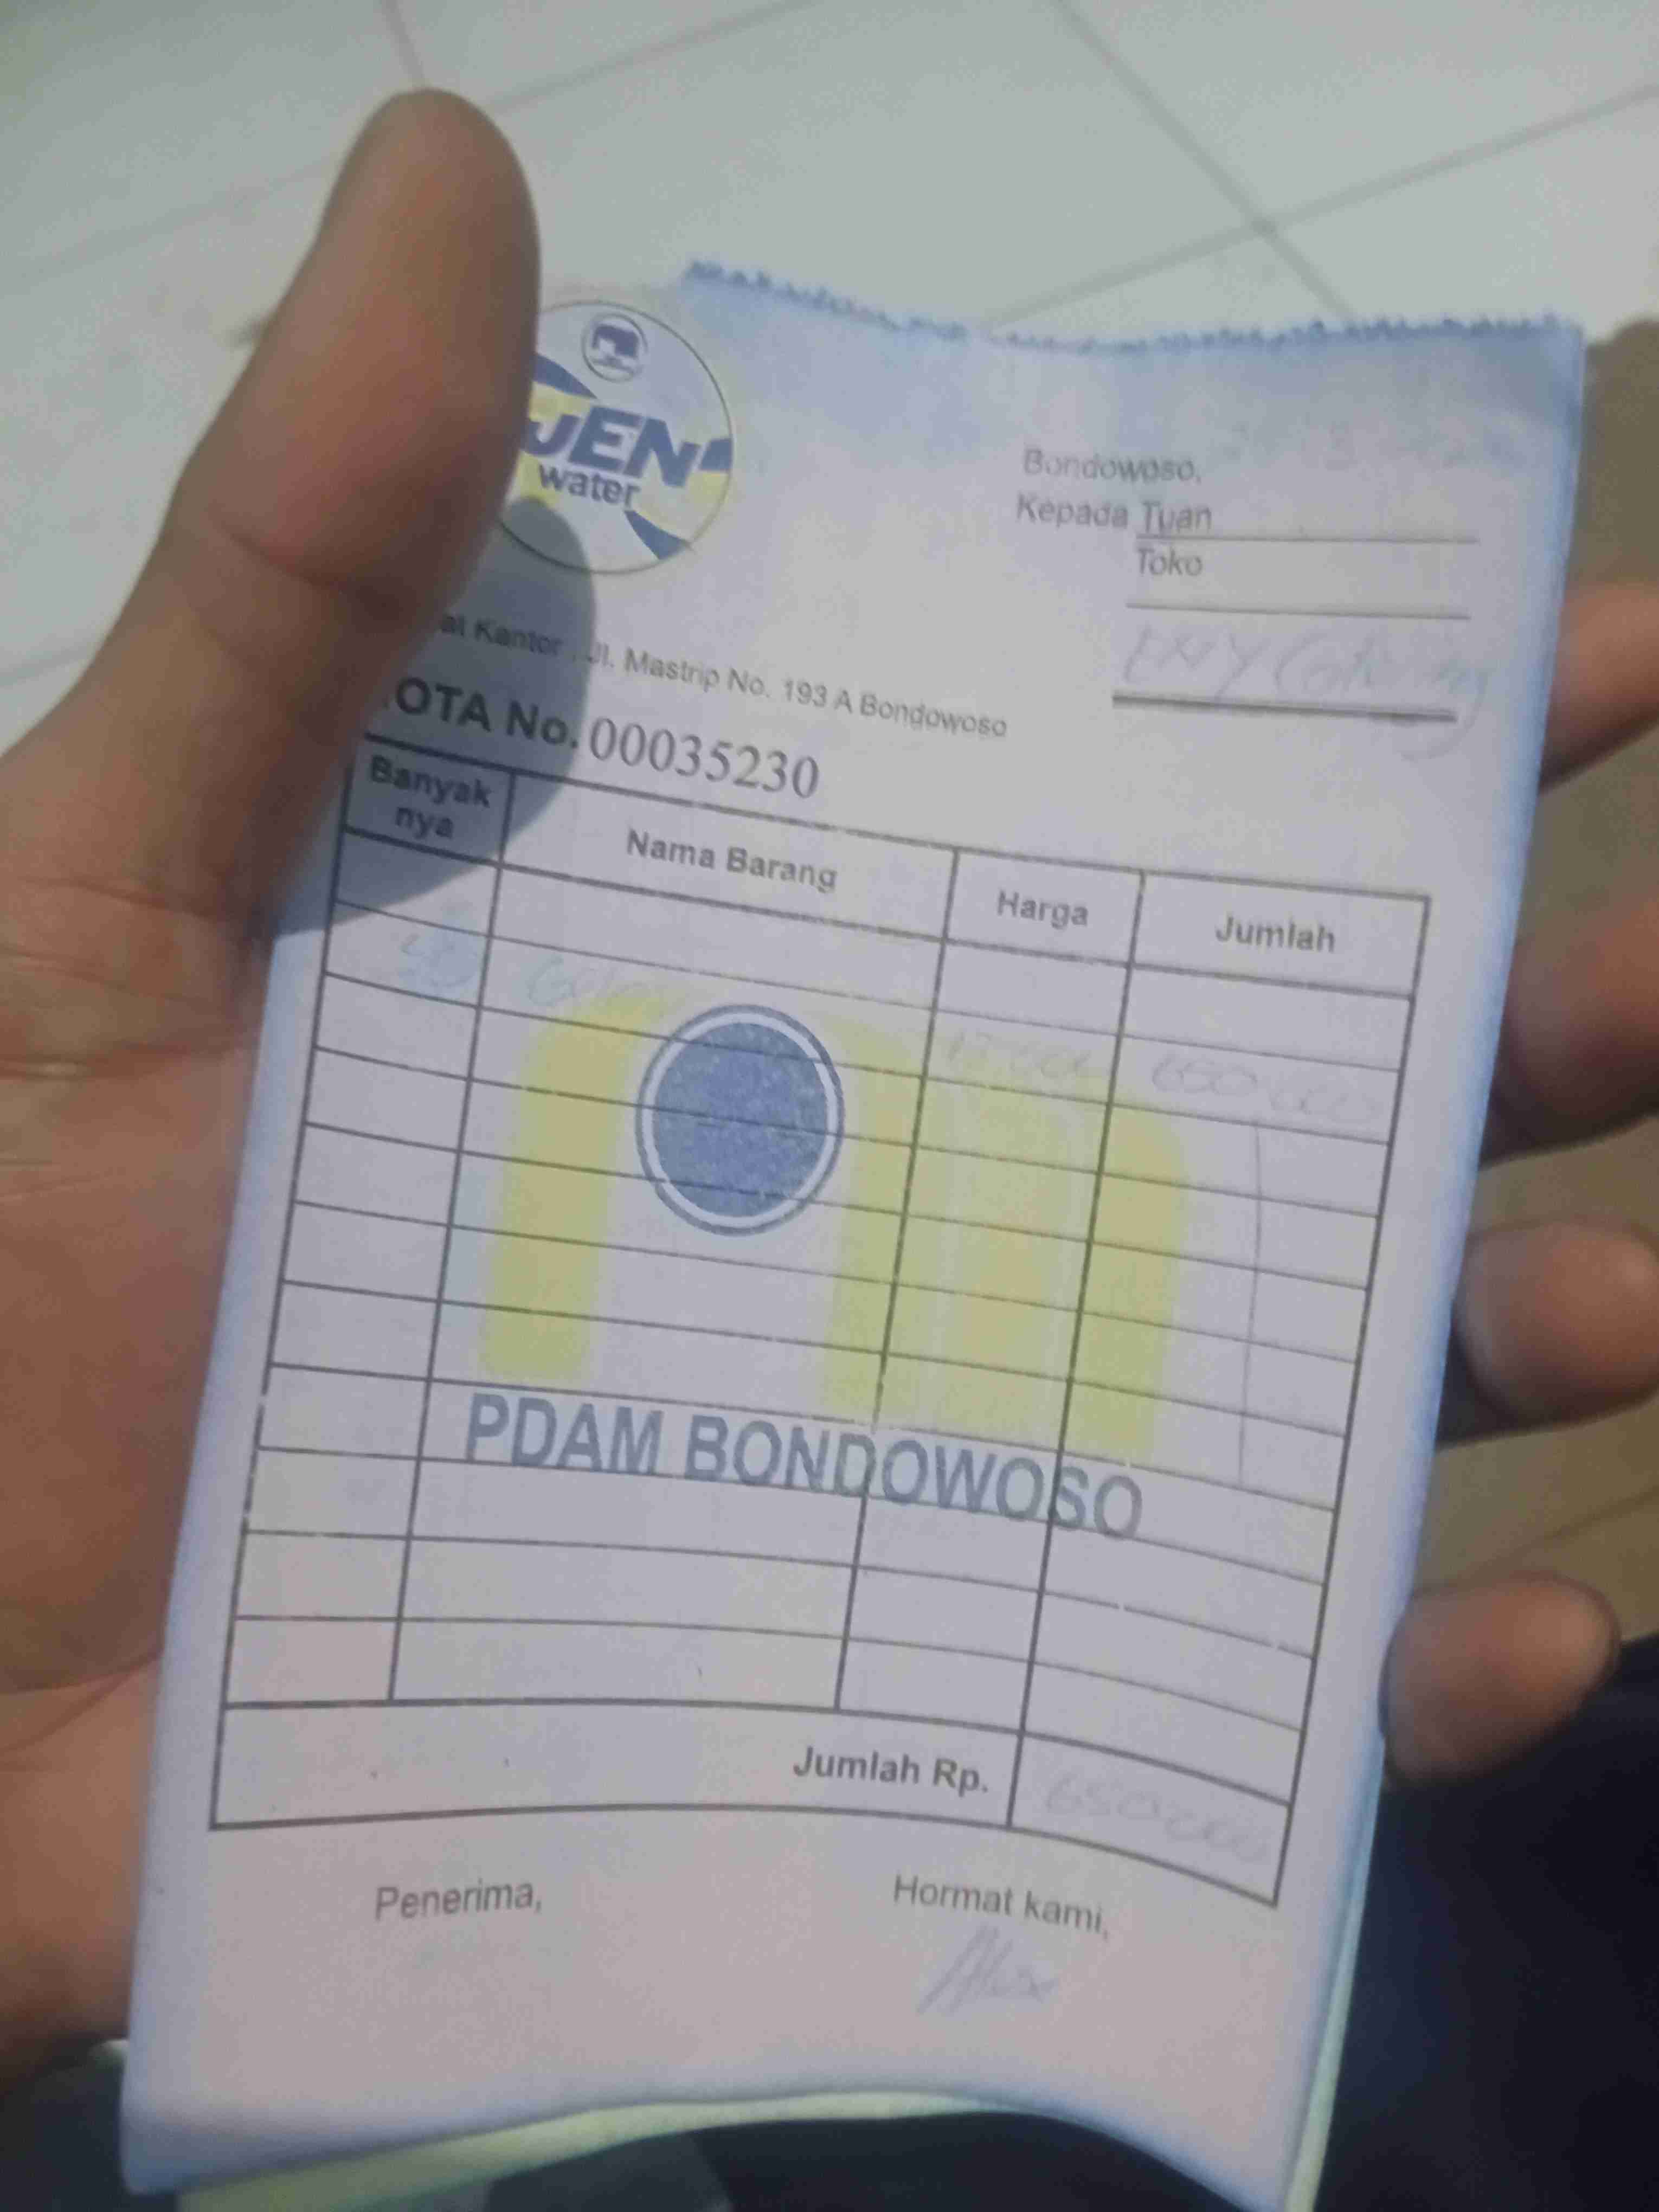 JEN
water
Bondowoso,
Kepada Tuan
Toko
Kantor : Jl. Mastrip No. 193 A Bondowoso
OTA No. 00035230
Banyak nya
Nama Barang
Harga
Jumlah
650 000
PDAM BONDOWOSO
Jumlah Rp.
650 000
Penerima,
Hormat kami,